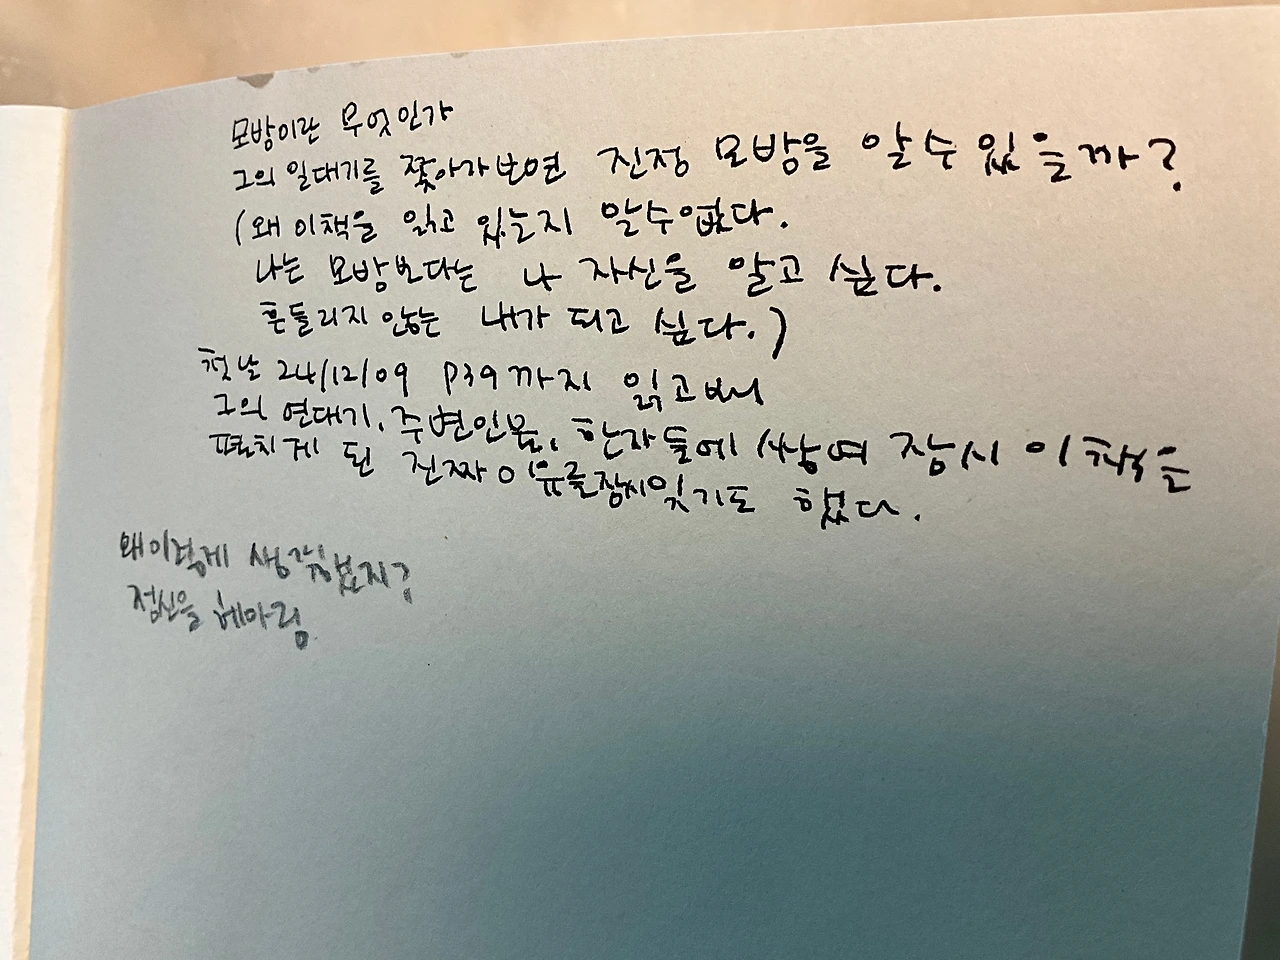 모방이란 무엇인가
그의 일대기를 쫓아가보면 진정 모방을 알수있을까?
(왜 이책을 읽고 있는지 알수없다.
나는 모방보다는 나 자신을 알고 싶다.
흔들리지 않는 내가 되고 싶다.)
첫날 24/12/09 p39까지 읽고나니
그의 연대기, 주변인물, 한자들에 쌓여 잠시 이책을
펼치게 된 진짜 이유를 잠시 잊기도 했다.
왜이렇게 생각했지?
정신을 헤아림